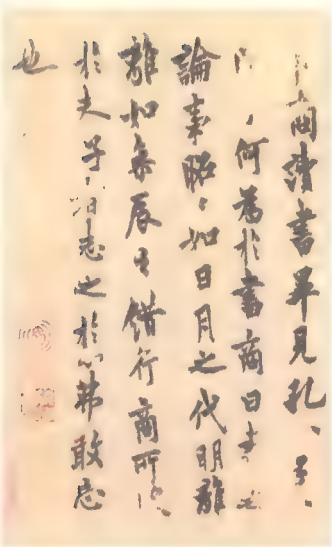 商讀書畢見孔、子、
何為於書商曰書
論事昭、如日月之代明離
離如參辰之錯行商所
於夫子志之於心弗敢忘
也